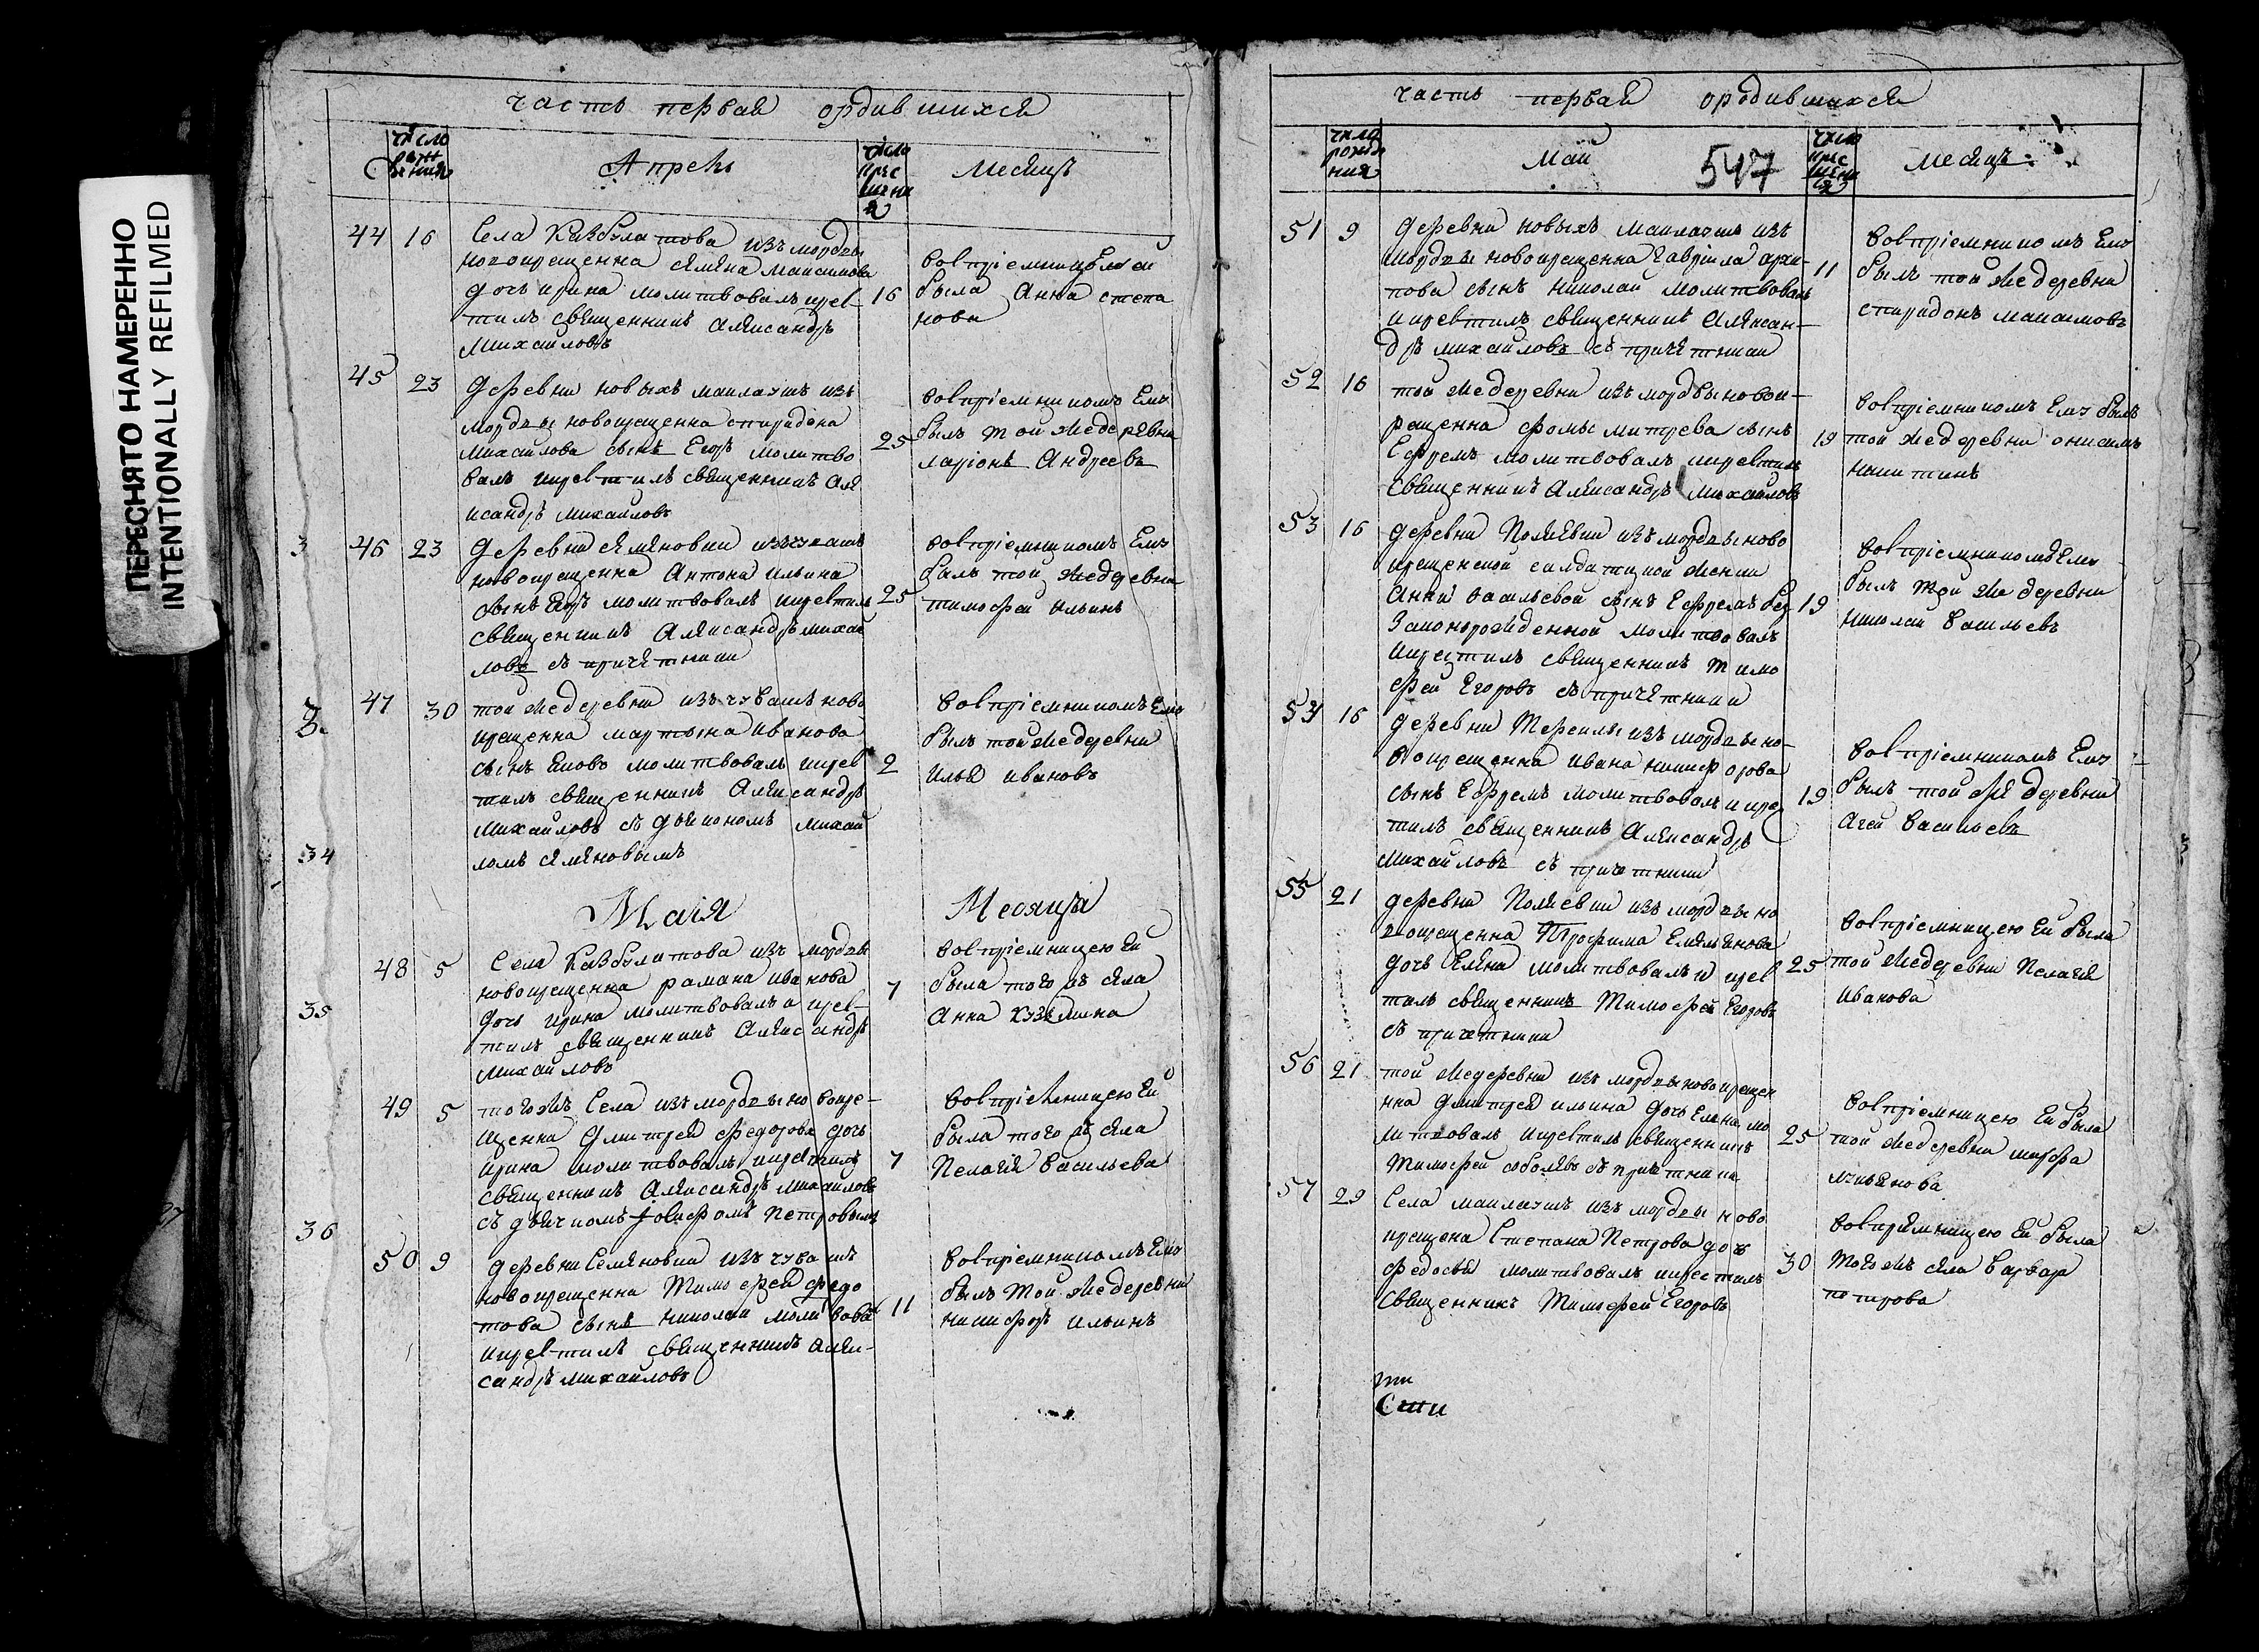 ПЕРЕСНЯТО НАМЕРЕННО
INTENTIONALLY REFILMED
часть первая ордившихся
число рож дения
Апрель
число крес щени я
месяцъ
44 16
Села Казбулатова изъ мордвы
новокрещенна семена максимова
дочь ирина молитвовалъ икрес
тилъ священникъ александръ
Михайловъ
16
восприемницею ей
была Анна степа
нова
45 23
деревни новыхъ маклаушъ изъ
мордвы новокрещенна спиридона
михайлова сынъ Егоръ молитво
валъ икрестилъ священникъ але
ксандръ михайловъ
25
восприемникомъ Ему
былъ той жедеревни
ларионъ Андреевъ
3
46 23
деревни семеновки изъчувашъ
новокрещенна Антона ильина
сынъ Егоръ молитвовалъ икрестилъ
священникъ Александръ михай
ловъ съ причетники
25
восприемникомъ Ему
былъ той жедеревни
тимофей ильинъ
47 30
той жедеревни изъчувашъ ново
крещенна мартына иванова
сынъ Яковъ молитвовалъ икрес
тилъ священникъ Александръ
михайловъ съ дьякономъ михай
ломъ семеновымъ
2
восприемникомъ Ему
былъ той жедеревни
илья ивановъ
34
Маія
Месяца
48 5
Села Казбулатова изъ мордвы
новокрещенна рамана иванова
дочь ирина молитвовалъ и крес
тилъ священникъ Александръ
михайловъ
7
восприемницею Ей
была того жъ села
Анна кузмина
35
49 5
тогожъ Села изъ мордвы новокре
щенна дмитрея федорова дочь
ирина молитвовалъ икрестилъ
священникъ Александръ михайловъ
съ дьячкомъ Іосифомъ петровымъ
7
восприемницею Ей
была того жъ села
Пелагея васильева
36
50 9
деревни Семеновки изъ чувашъ
новокрещенна Тимофея федо
това сынъ николай молитвовалъ
икрестилъ священникъ алек
сандръ михайловъ
11
восприемникомъ Ему
былъ той жедеревни
никифоръ ильинъ
часть первая ородившихся
число рожде ния
Май
547
число крес щени я
месяцъ
51 9
деревни новыхъ маклаушъ изъ
мордвы новокрещенна гавриила архи
пова сынъ николай молитвовалъ
икрестилъ священникъ Алексан
дръ михайловъ съ причетники
11
восприемникомъ Ему
былъ той же деревни
спиридонъ максимовъ
52 16
той жедеревни изъ мордвы новок
рещенна фомы митрева сынъ
Ефремъ молитвовалъ икрестилъ
священникъ Александръ михайловъ
19
восприемникомъ Ему былъ
той жедеревни онисимъ
никитинъ
53 16
деревни Поляевки изъ мордвы ново
крещенской салдатцкой женки
Анны васильевой сынъ Ефремъ без
законорожденной молитвовалъ
икрестилъ священникъ тимо
фей Егоровъ съ причетники
19
восприемникомъ Ему
былъ той же деревни
николай васильевъ
54 16
деревни Терсилы изъ мордвы но
вокрещенна ивана никифорова
сынъ Ефремъ молитвовалъ и крес
тилъ священникъ Александръ
михайловъ съ причетники
19
восприемникомъ Ему
былъ той же деревни
Агей васильевъ
55 21
деревни Полаевки изъ мордвы но
вокрещенна Трофима Емельянова
дочь Елена молитвовалъ и крес
тилъ священникъ Тимофей Егоровъ
съ причетники
25
восприемницею Ей была
той жедеревни Пелагея
иванова
56 21
той жедеревни изъ мордвы новокрещен
нна дмитрея ильина дочь Елена мо
литвовалъ икрестилъ священникъ
Тимофей соболевъ съ причетники
25
восприемницею Ей была
той жедеревни марфа
лукьянова
57 29
Села маклаушъ изъ мордвы ново
крещена Степана Петрова дочь
федосья молитвовалъ икрестилъ
священникъ Тимофей Егоровъ
30
восприемницею Ей была
тогожъ села варвара
петрова